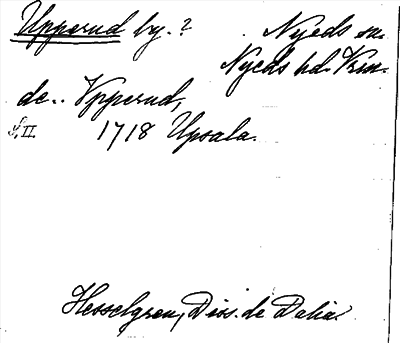 Upperud by.? Nyeds sn.
Nyeds hd. Vrml.
de.. Vpperud,
S. II. 1718 Upsala.
Hesselgren, Diss. de Dalia.